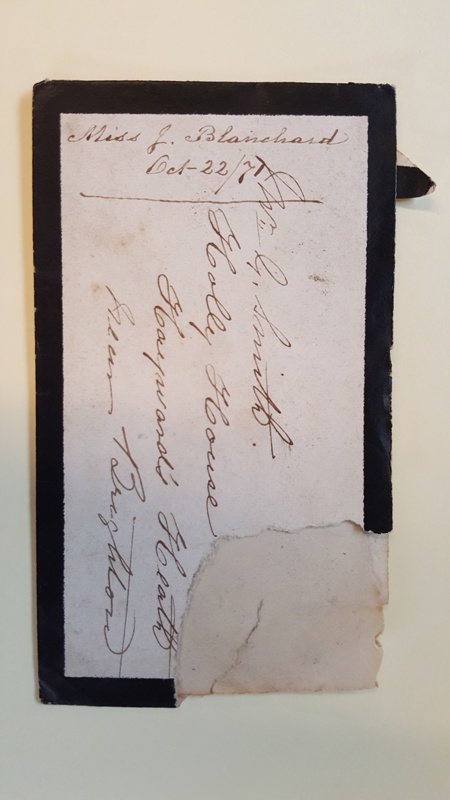 Miss J. Blanchard
Oct-22/71
Mrs. G. Smith.
Holly House
Haywards Heath
near Brighton